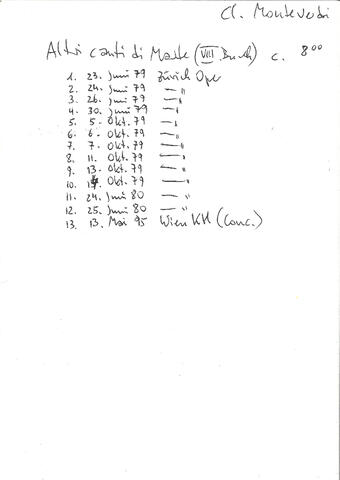 Cl. Monteverdi
Altri canti di Marte (VIII. Buch) c. 8⁰⁰
1. 23. Juni 79 Zürich Oper
2. 24. Juni 79 —"
3. 26. Juni 79 —"
4. 30. Juni 79 —"
5. 5. Okt. 79 —"
6. 6. Okt. 79 —"
7. 7. Okt. 79 —"
8. 11. Okt. 79 —"
9. 13. Okt. 79 —"
10. Okt. 79 —"
11. 24. Juni 80 —"
12. 25. Juni 80 —"
13. 13. Mai 95 Wien KH (Conc.)